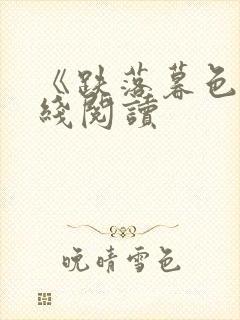 《跌落暮色
綫閱讀
晚晴雪色